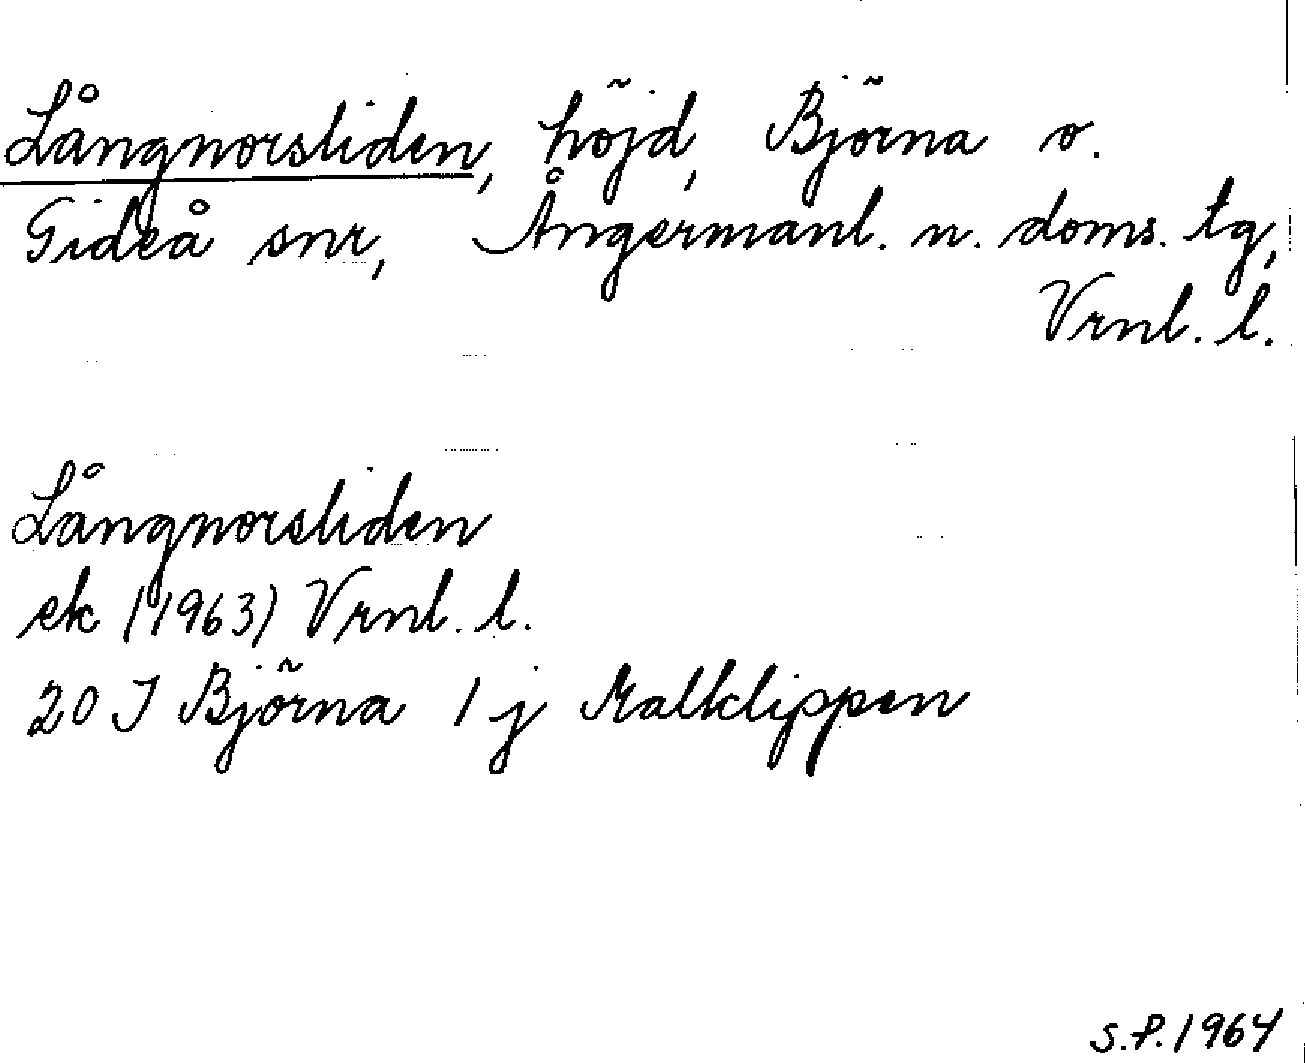 Långnorsliden, höjd, Björna o.
Gideå snr, Ångermanl. n. doms. tg,
Vrnl. l.
Långnorsliden
ek (1963) Vrnl. l.
20 I Björna 1 j Malklippen
S.P. 1964